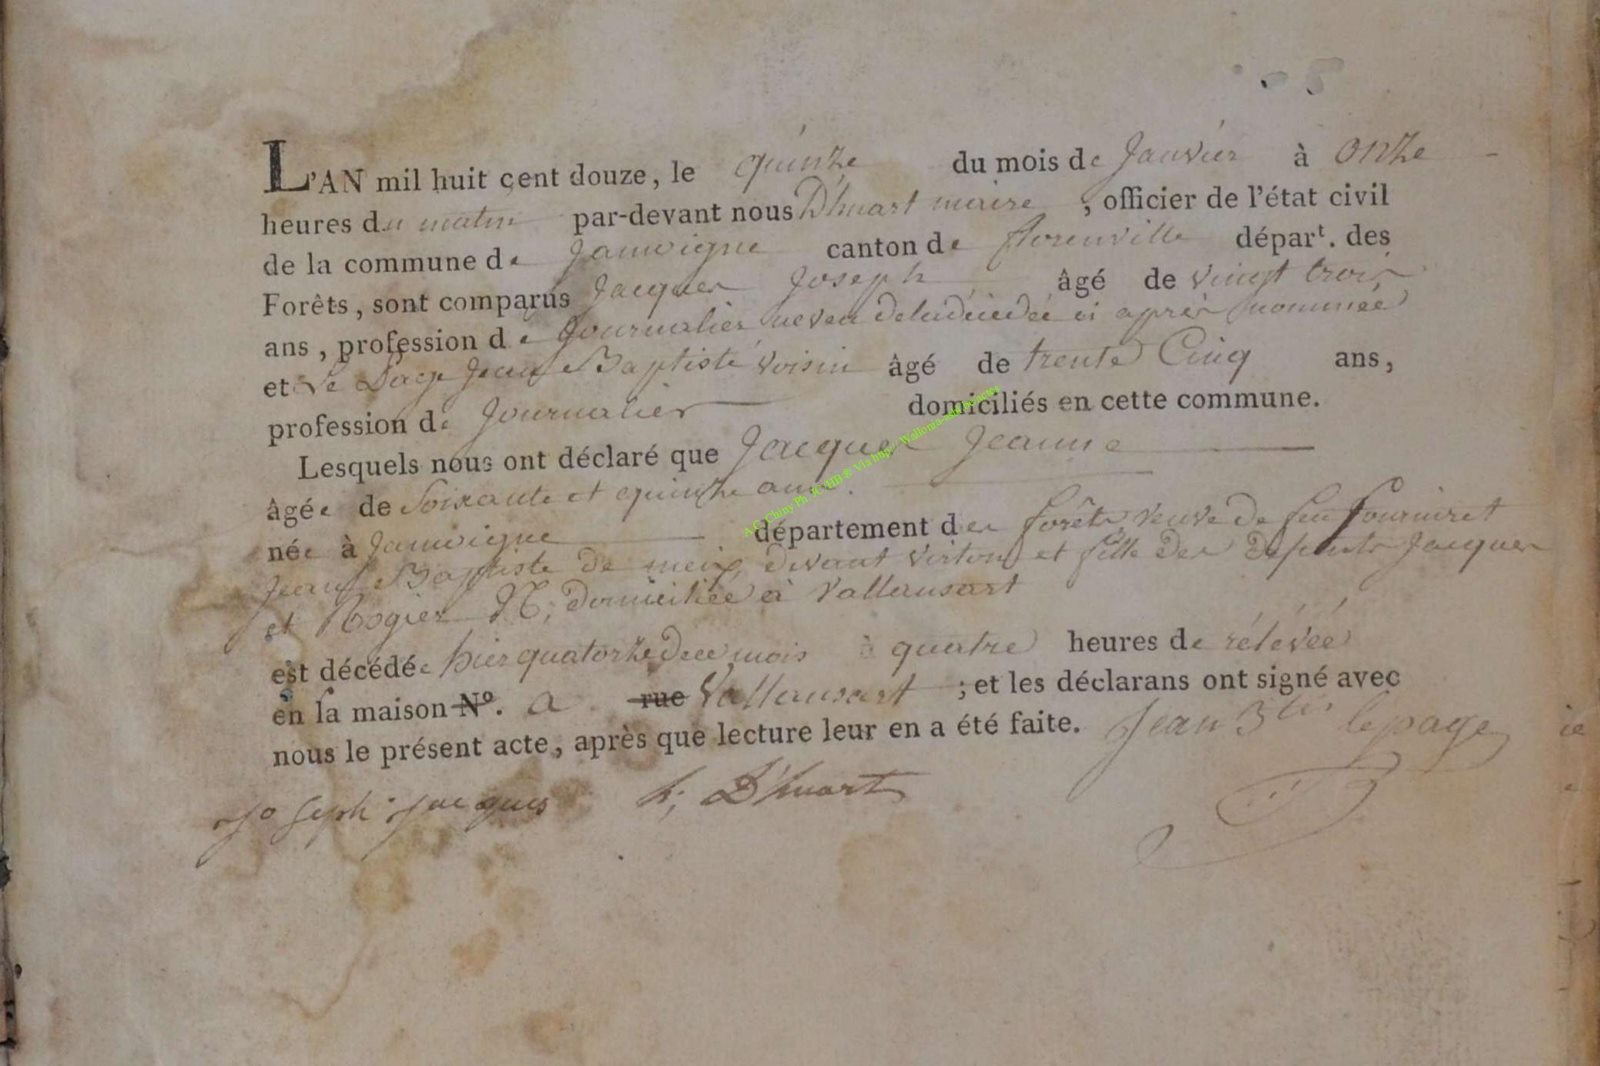 5
L'AN mil huit cent douze, le quinze du mois de Janvier à onze
heures du matin par-devant nous D'huart maire, officier de l'état civil
de la commune de Jamoigne canton de florenvilleépart. départ. des
Forêts, sont comparus Jacques Joseph âgé de vingt trois
ans, profession de Journalier neveu de la décédée ci après nommée
et Le Page Jean Baptiste voisin âgé de trente Cinq ans,
profession de Journalier domiciliés en cette commune.
Lesquels nous ont déclaré que Jacques Jeanne
âgée de Soixante et quinze ans.
née à Jamoigne département des forêts veuve de feu fourniret
Jean Baptiste de meix devant virton et fille des defunts Jacques
et Rogier N; domiciliée à Vallansart
est décédée hier quatorze de ce mois à quatre heures de rélévée
en la maison N°. a rue Vallansart ; et les déclarans ont signé avec
nous le présent acte, après que lecture leur en a été faite. Jean Bte lepage
Joseph jacques h; D'huart